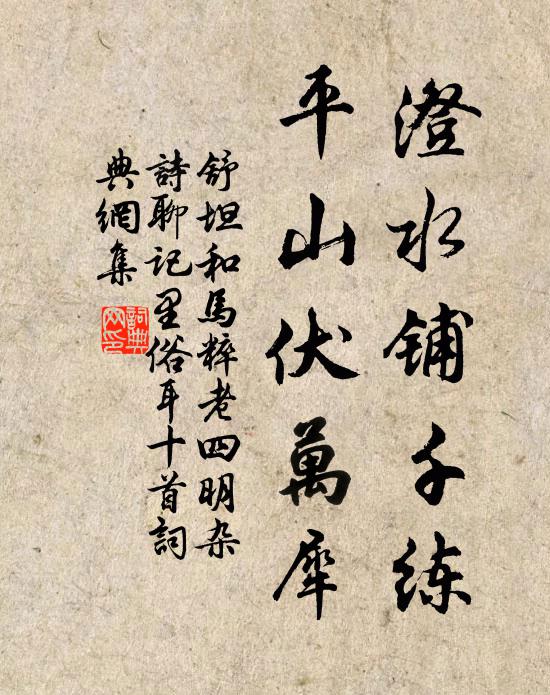 澄水铺千练
平山伏萬犀
舒坦和馬粹老四明杂
詩聊記里俗耳十首詞
典網集
詞典
网印